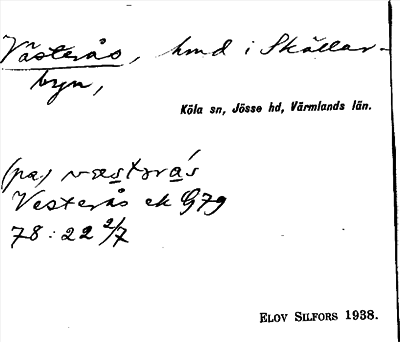 Västerås, hmd i Skällar-
byn,
Köla sn, Jösse hd, Värmlands län.
(pa) væstərás
Vesterås ek G79
78:22 2/7
ELOV SILFORS 1938.